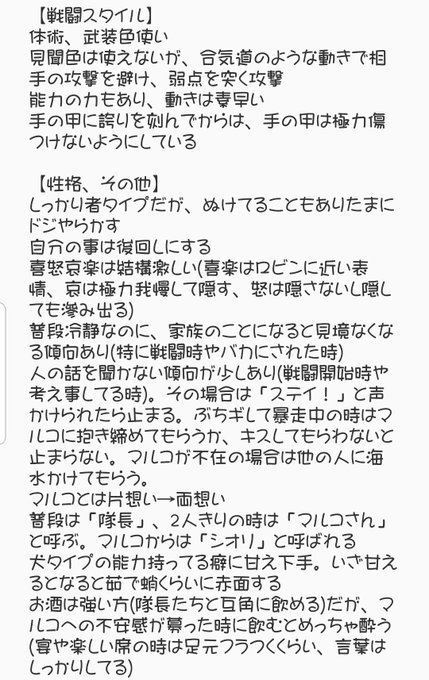 【戦闘スタイル】
体術、武装色使い
見聞色は使えないが、合気道のような動きで相
手の攻撃を避け、弱点を突く攻撃
能力の力もあり、動きは素早い
手の甲に誇りを刻んでからは、手の甲は極力傷
つけないようにしている
【性格、その他】
しっかり者タイプだが、ぬけてることもありたまに
ドジやらかす
自分の事は後回しにする
喜怒哀楽は結構激しい(喜楽はロビンに近い表
情、哀は極力我慢して隠す、怒は隠さないし隠し
ても滲み出る)
普段冷静なのに、家族のことになると見境なくな
る傾向あり(特に戦闘時やバカにされた時)
人の話を聞かない傾向が少しあり(戦闘開始時や
考え事してる時)。その場合は「ステイ!」と声
かけられたら止まる。ぶちギレして暴走中の時はマ
ルコに抱き締めてもらうか、キスしてもらわないと
止まらない。マルコが不在の場合は他の人に海
水かけてもらう。
マルコとは片想い→両想い
普段は「隊長」、2人きりの時は「マルコさん」
と呼ぶ。マルコからは「シオリ」と呼ばれる
犬タイプの能力持ってる癖に甘え下手。いざ甘え
るとなると茹で蛸くらいに赤面する
お酒は強い方(隊長たちと互角に飲める)だが、マ
ルコへの不安感が募った時に飲むとめっちゃ酔う
(宴や楽しい席の時は足元フラつくくらい、言葉は
しっかりしてる)